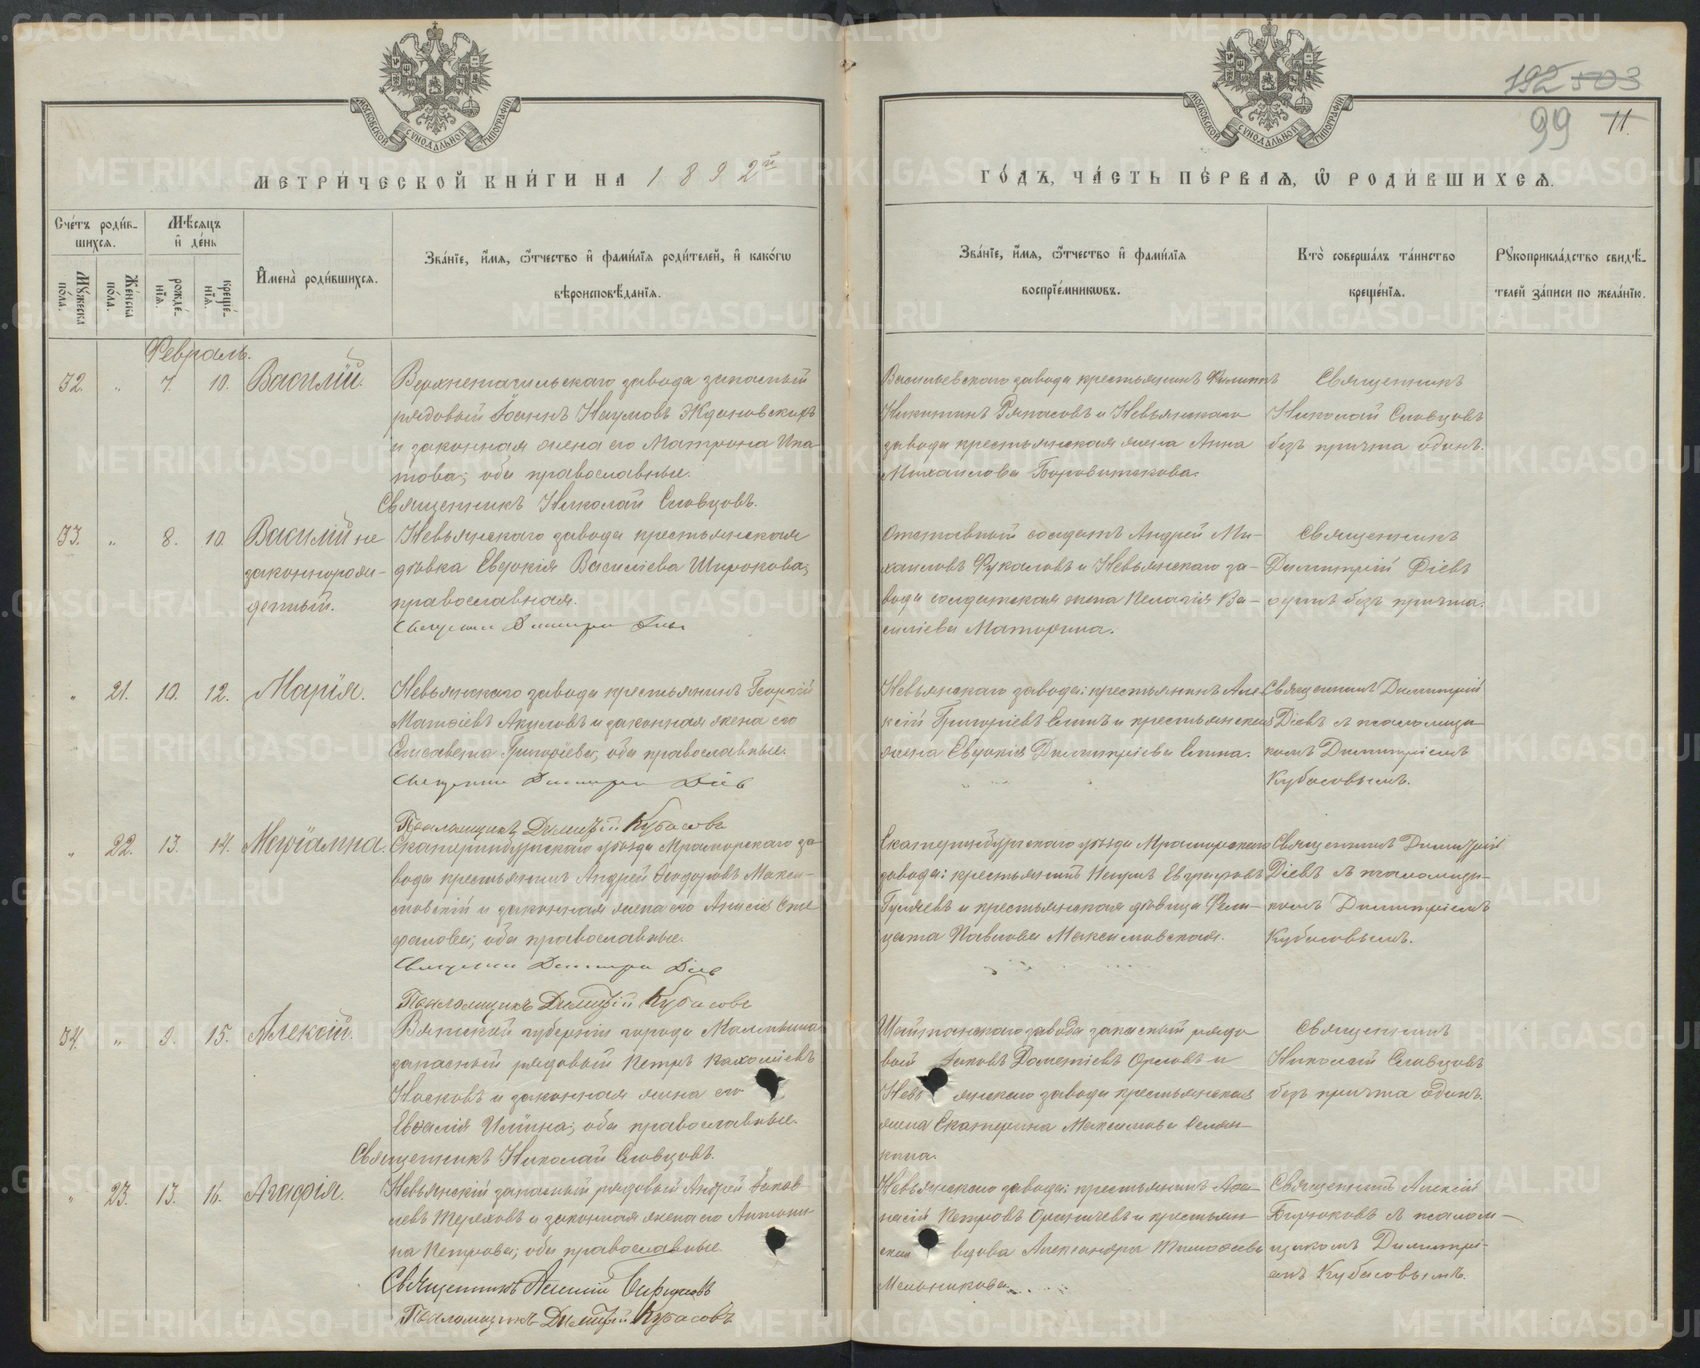 192 503
99 11.
МЕТРИ́ЧЕСКОЙ КНИ́ГИ НА 1892й
ГО́ДЪ, ЧА́СТЬ ПЕ́РВАЯ, Ѡ РОДИ́ВШИХСЯ.
Сче́тъ роди́в-
шихся.
Мѣ́сяцъ
и де́нь
Му́жеска
по́ла.
Же́нска
по́ла.
рожде́-
нїя.
креще́-
нїя.
Имена̀ роди́вшихся.
Зва́нїе, и́мя, ѻ́тчество и фами́лїя роди́телей, и како́гѡ
вѣроисповѣ́данїя.
Зва́нїе, и́мя, ѻ́тчество и фами́лїя
воспрїе́мникѡвъ.
Кто̀ соверша́лъ та́инство
креще́нїя.
Рꙋкоприкла́дство свидѣ́-
телей за́писи по жела́нїю.
Февраль.
32. " 7. 10. Василій.
Верхнетагильскаго завода запасный
рядовый Іоаннъ Наумовъ Ждановскихъ
и законная жена его Матрона Ипа-
това; оба православные.
Священникъ Николай Словцовъ.
Васильевскаго завода крестьянинъ Филиппъ
Никитинъ Ряпасовъ и Невьянскаго
завода крестьянская жена Анна
Михаилова Боровитикова.
Священникъ
Николай Словцовъ
безъ причта одинъ.
33. " 8. 10. Василій не
законнорож-
денный.
Невьянскаго завода крестьянская
дѣвка Евдокія Василіева Широкова;
православная.
Священникъ Димитрій Діевъ
Отставный солдатъ Андрей Ми-
хаиловъ Фукаловъ и Невьянскаго за-
вода солдатская жена Пелагія Ва-
силіева Маторина.
Священникъ
Димитрій Діевъ
одинъ безъ причта.
" 21. 10. 12. Марія.
Невьянскаго завода крестьянинъ Георгій
Матѳіевъ Акуловъ и законная жена его
Елисавета Григоріева; оба православные.
Священникъ Димитрій Діевъ
Псаломщикъ Димитрій Кубасовъ
Невьянскаго завода: крестьянинъ Але-
ксій Григоріевъ Елинъ и крестьянская
жена Евдокія Димитріева Елина.
Священникъ Димитрій
Діевъ съ псаломщи-
комъ Димитріемъ
Кубасовымъ.
" 22. 13. 14. Маріамна.
Екатеринбургскаго уѣзда Мраморскаго за-
вода крестьянинъ Андрей Ѳеодоровъ Макси-
мовскій и законная жена его Анисія Сте-
фанова; оба православные.
Священникъ Димитрій Діевъ
Псаломщикъ Димитрій Кубасовъ
Екатеринбургскаго уѣзда Мраморскаго
завода: крестьянинъ Евграфовъ
Гуляевъ и крестьянская дѣвица Фели-
цата Павлова Максимовская.
Священникъ Димитрій
Діевъ съ псаломщи-
комъ Димитріемъ
Кубасовымъ.
34. " 9. 15. Алексій.
Вятской губерніи города Малмыжа
запасный рядовый Петръ
Носковъ и законная жена его
Евѳалія Ильина; оба православные.
Священникъ Николай Словцовъ.
Шайтанскаго завода запасный рядо
вый Іаковъ Дометіевъ Орловъ и
Невьянскаго завода крестьянская
жена Екатерина Максимова Селян-
кина.
Священникъ
Николай Словцовъ
безъ причта одинъ.
" 23. 13. 16. Агафія.
Невьянскій запасный рядовый Андрей Іаков-
левъ Тереховъ и законная жена его Антони-
на Петрова; оба православные
Священникъ Алексій Бирюковъ
Псаломщикъ Димитрій Кубасовъ
Невьянскаго завода: крестьянинъ Аѳа-
насій Петровъ и крестьян-
ская вдова Александра Тимоѳеева
Мельникова.
Священникъ Алексій
Бирюковъ съ псалом-
щикомъ Димитрі-
емъ Кубасовымъ.